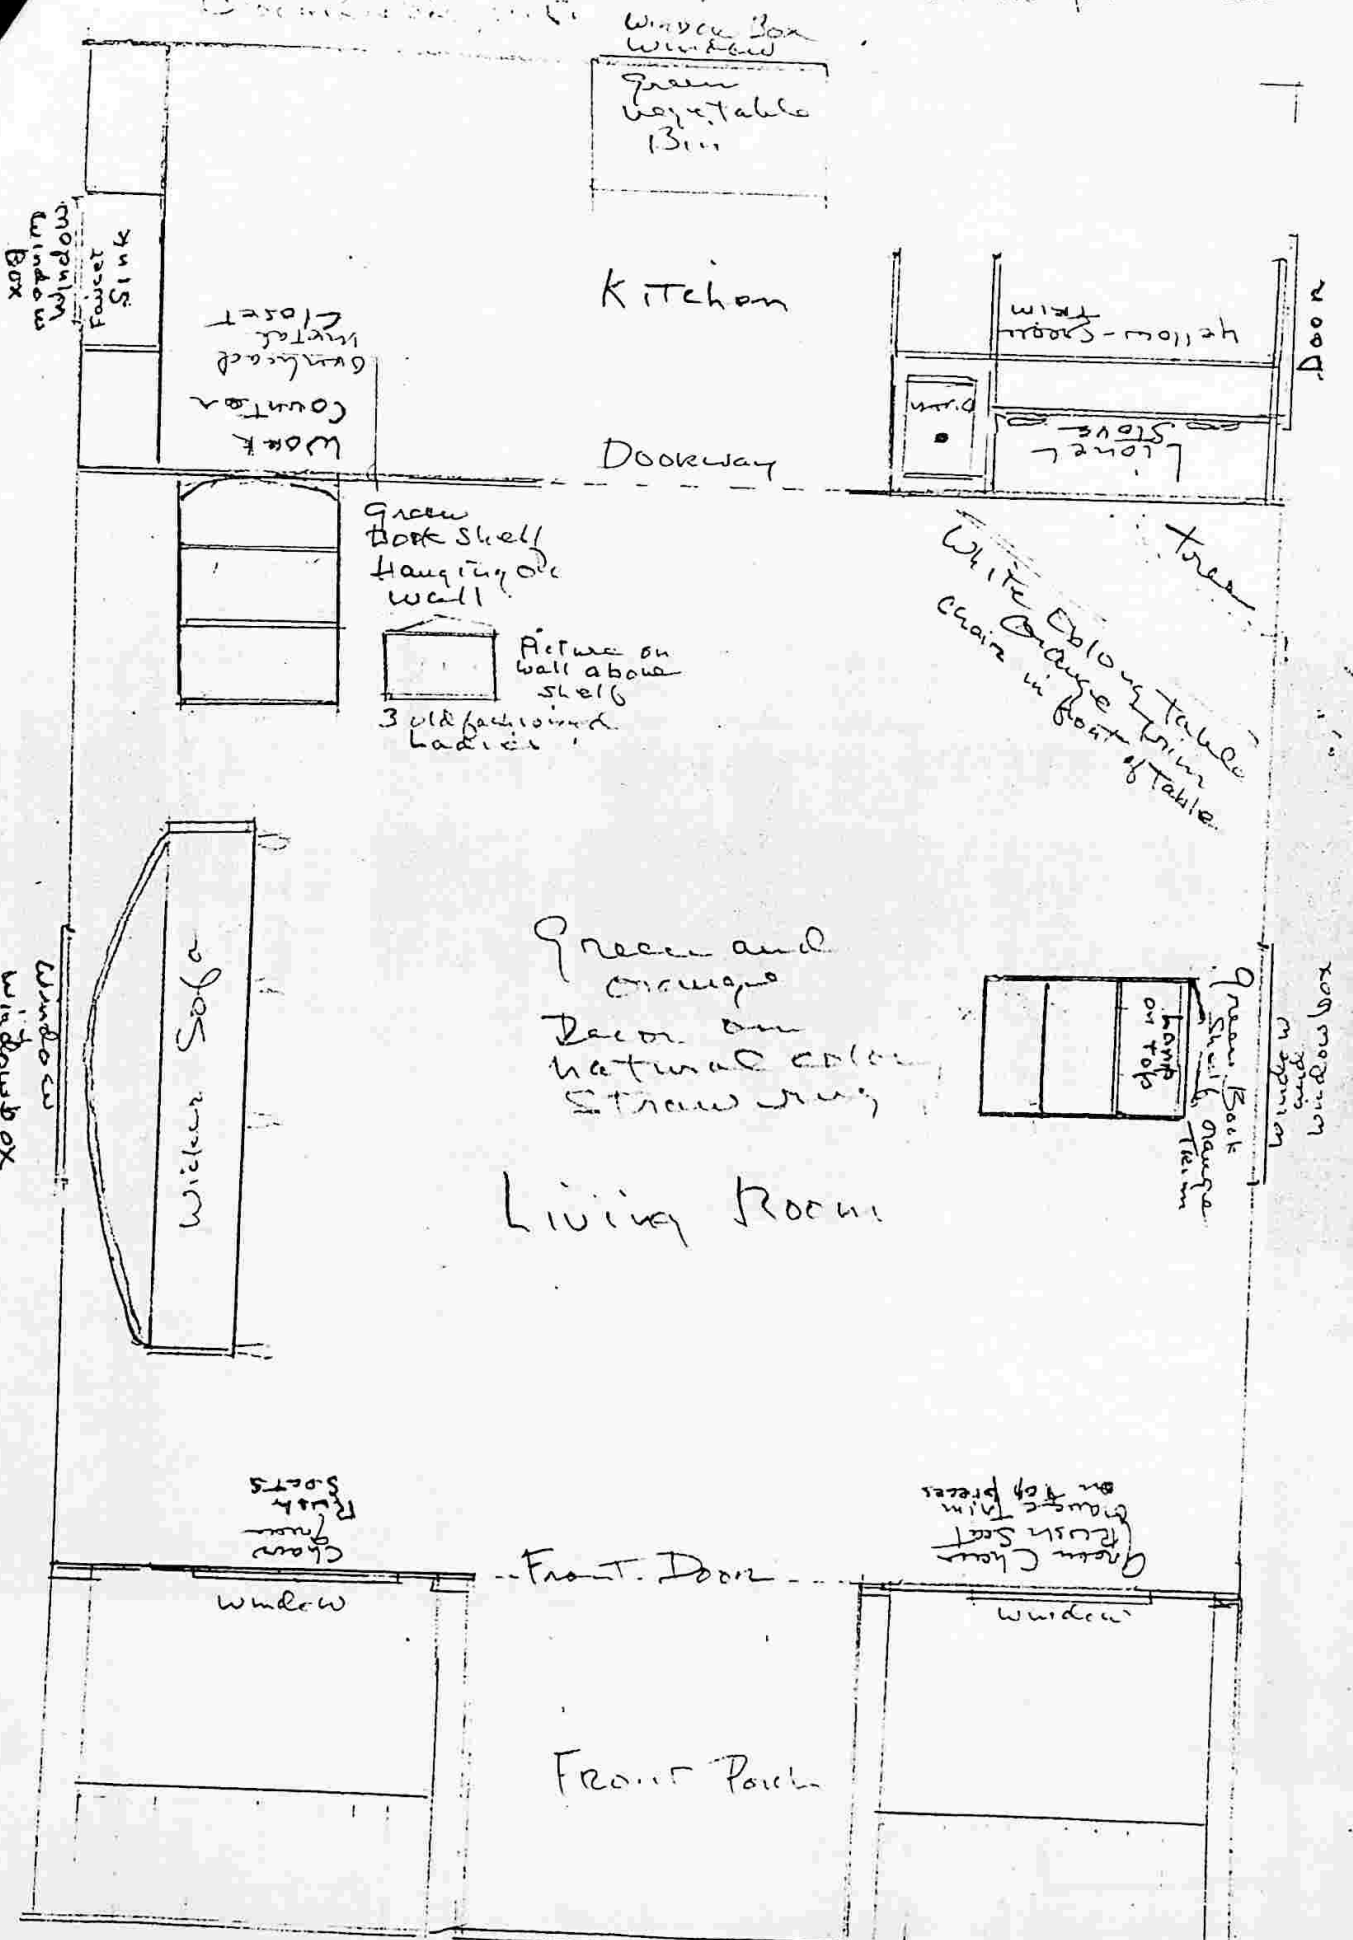 Window Box
Window
Green
vegetable
Bin
Window
Window
Box
Faucet
Sink
Kitchen
Work
Counter
Overhead
metal
Closet
Yellow-Green
Trim
Door
Lionel
Stove
Doorway
Green
Book Shelf
Hanging on
wall
Picture on
wall above
shelf
3 old fashioned
Ladies
White oblong table
orange trim
chair in front of table
Wicker Sofa
Window
Windowbox
Green and
orange
Decor on
natural color
Straw rug
Lamp
on top
Green Book
Shelf orange
Trim
Window
and
Windowbox
Living Room
Chair
green
Rush
Seats
Green Chair
Rush Seat
orange Trim
on top pieces
Front Door
Window
Window
Front Porch